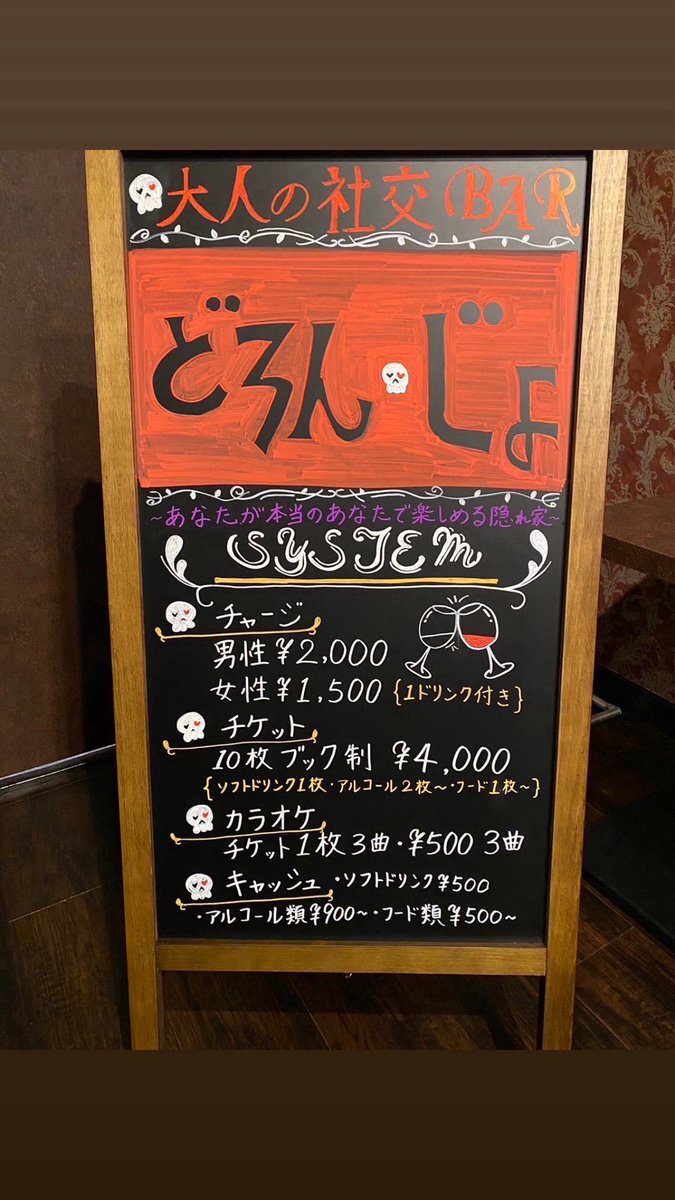 大人の社交BAR
どろん・じょ
~あなたが本当のあなたで楽しめる隠れ家~
SYSTEM
チャージ
男性¥2,000
女性¥1,500 {1ドリンク付き}
チケット
10枚ブック制 ¥4,000
{ソフトドリンク1枚・アルコール2枚~・フード1枚~}
カラオケ
チケット1枚3曲・¥500 3曲
キャッシュ ・ソフトドリンク¥500
・アルコール類¥900~・フード類¥500~